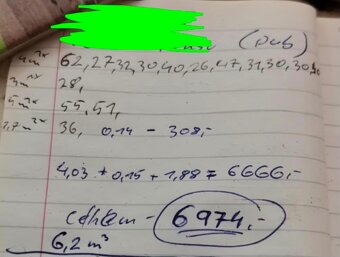 (DUB)
4m 62,27,32,30,40,26,47,31,30,30,
3m 28,
5m 55,51,
2,7m 36, 0,14 - 308,-
4,03 + 0,15 + 1,88 = 6666,-
celkem - 6974,-
6,2 m³